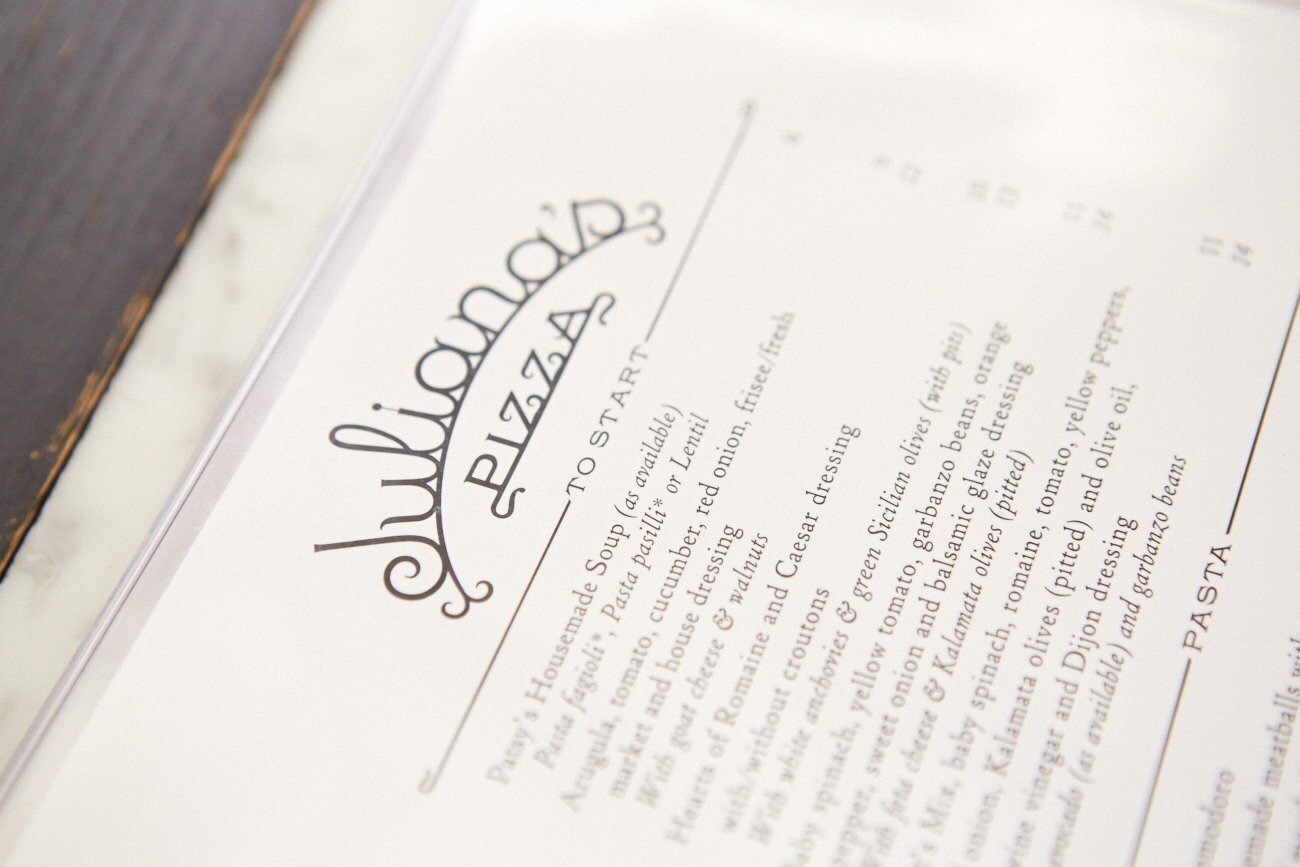 Juliana's
PIZZA
TO START
Patsy's Housemade Soup (as available)
Pasta fagioli*, Pasta pasilli* or Lentil
Arugula, tomato, cucumber, red onion, frisee/fresh
market and house dressing
With goat cheese & walnuts
Hearts of Romaine and Caesar dressing
with/without croutons
With white anchovies & green Sicilian olives (with pits)
baby spinach, yellow tomato, garbanzo beans, orange
pepper, sweet onion and balsamic glaze dressing
With feta cheese & Kalamata olives (pitted)
's Mix, baby spinach, romaine, tomato, yellow peppers,
onion, Kalamata olives (pitted) and olive oil,
wine vinegar and Dijon dressing
avocado (as available) and garbanzo beans
11
14
PASTA
modoro
made meatballs with